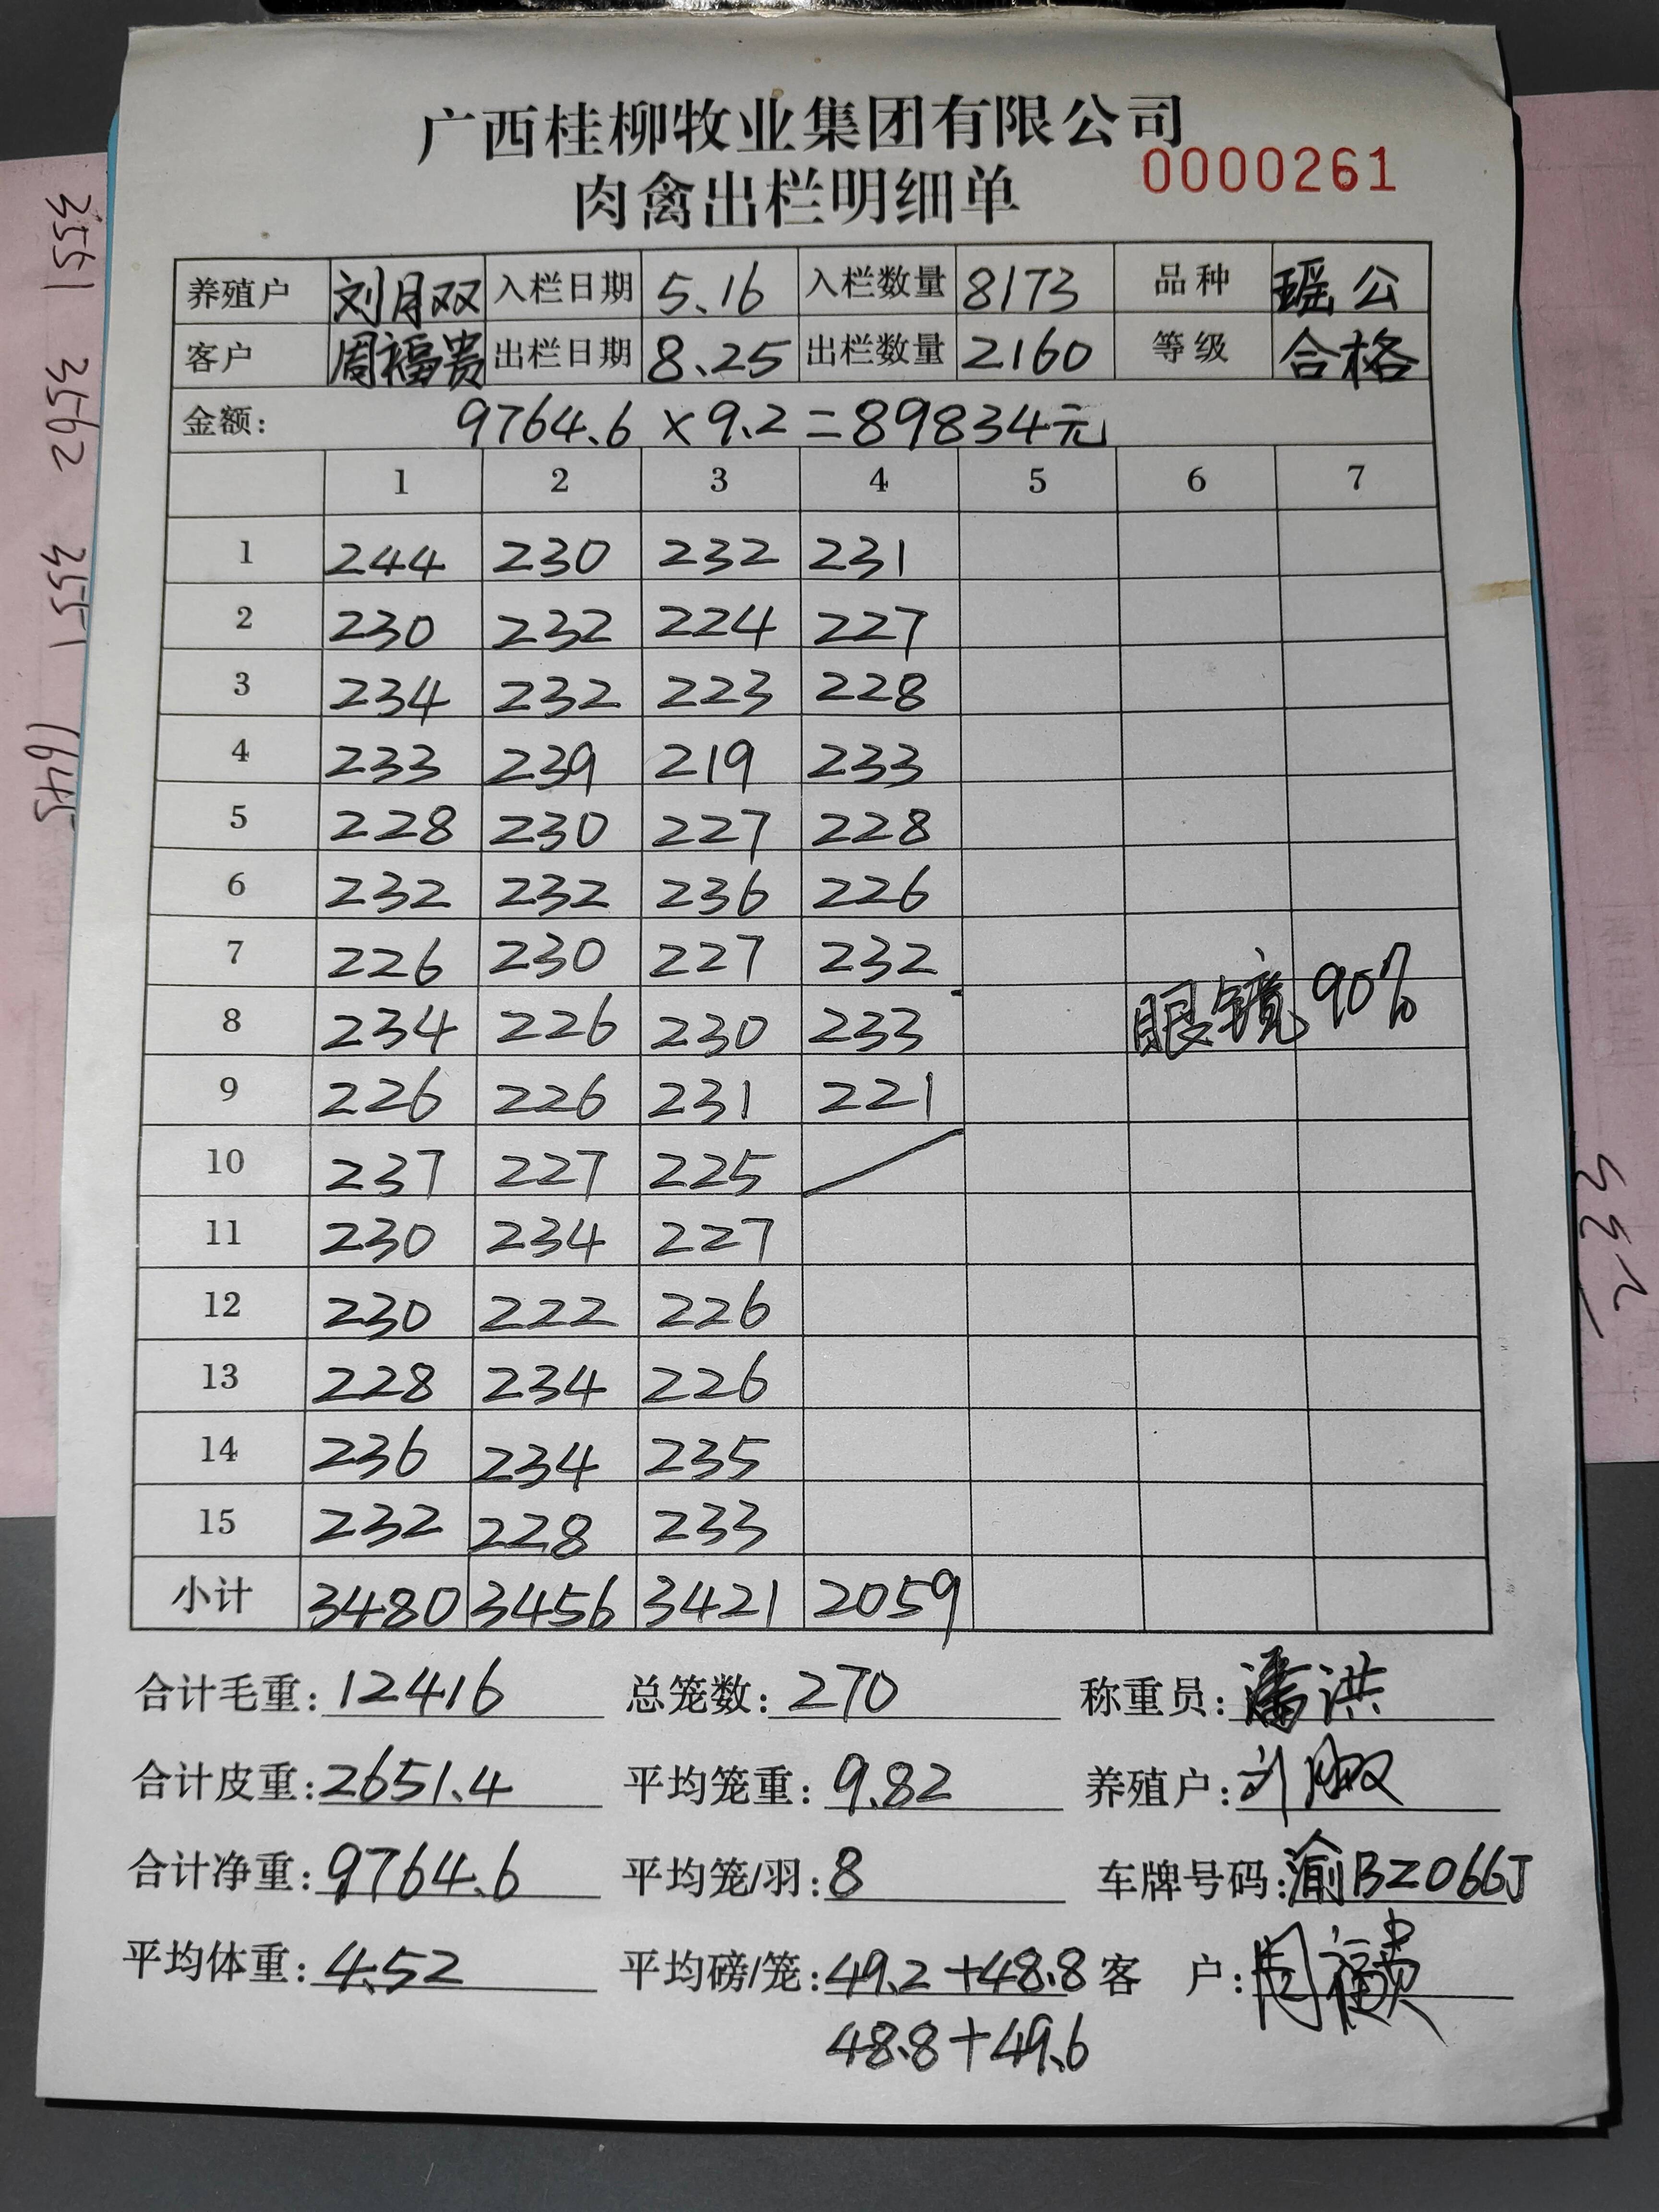 广西桂柳牧业集团有限公司
肉禽出栏明细单 0000261
养殖户 刘月双 入栏日期 5.16 入栏数量 8173 品种 瑶公
客户 周福贵 出栏日期 8.25 出栏数量 2160 等级 合格
金额: 9764.6×9.2=89834元
1 2 3 4 5 6 7
1 244 230 232 231
2 230 232 224 227
3 234 232 223 228
4 233 239 219 233
5 228 230 227 228
6 232 232 236 226
7 226 230 227 232
8 234 226 230 233 眼镜90%
9 226 226 231 221
10 237 227 225
11 230 234 227
12 230 222 226
13 228 234 226
14 236 234 235
15 232 228 233
小计 3480 3456 3421 2059
合计毛重: 12416 总笼数: 270 称重员: 潘洪
合计皮重: 2651.4 平均笼重: 9.82 养殖户: 刘月双
合计净重: 9764.6 平均笼/羽: 8 车牌号码: 渝BZ066J
平均体重: 4.52 平均磅/笼: 49.2+48.8 客 户: 周福贵
48.8+49.6
3551 3562 3551 1645